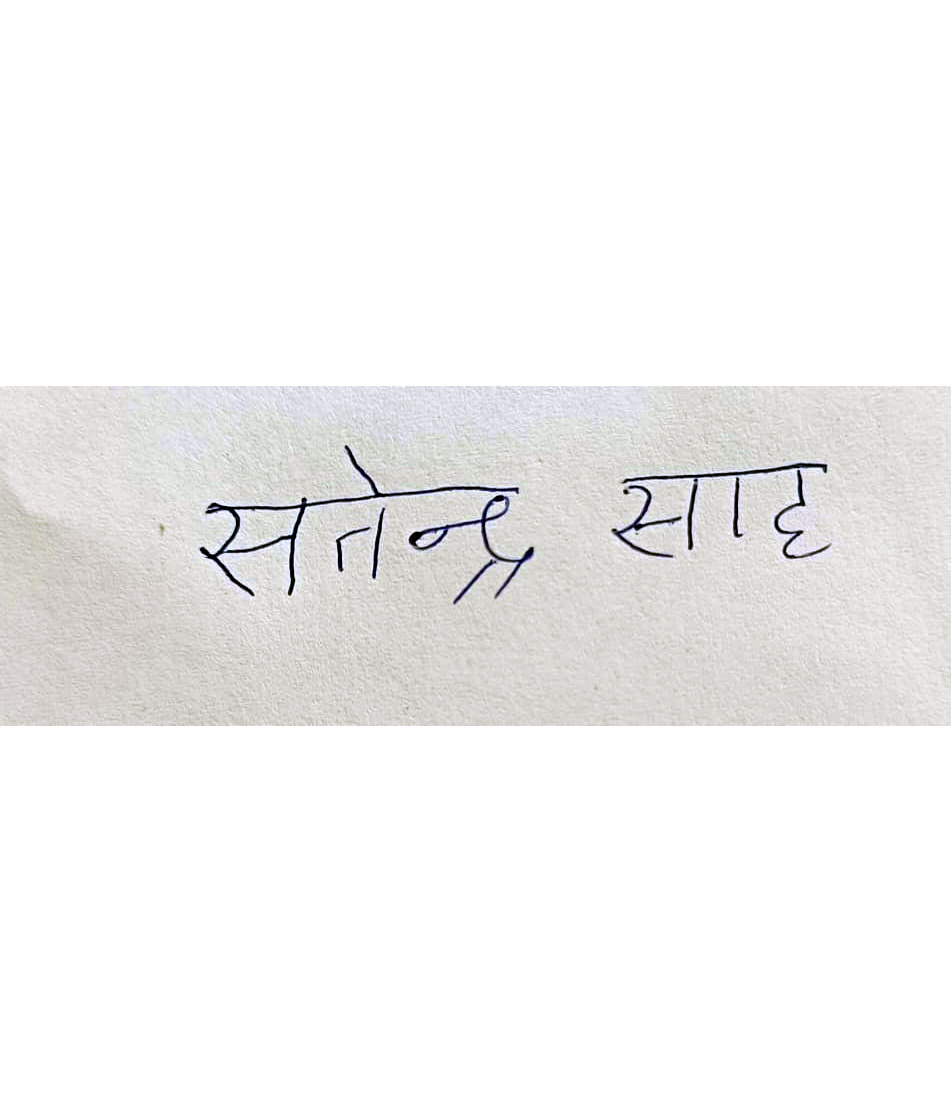 सतेन्द्र साह